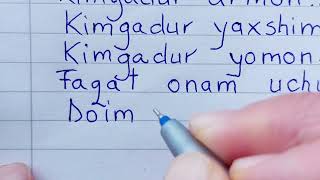 Kimgadur armon..
Kimgadur yaxshim
Kimgadur yomon.
Faqat onam uchu
Doim